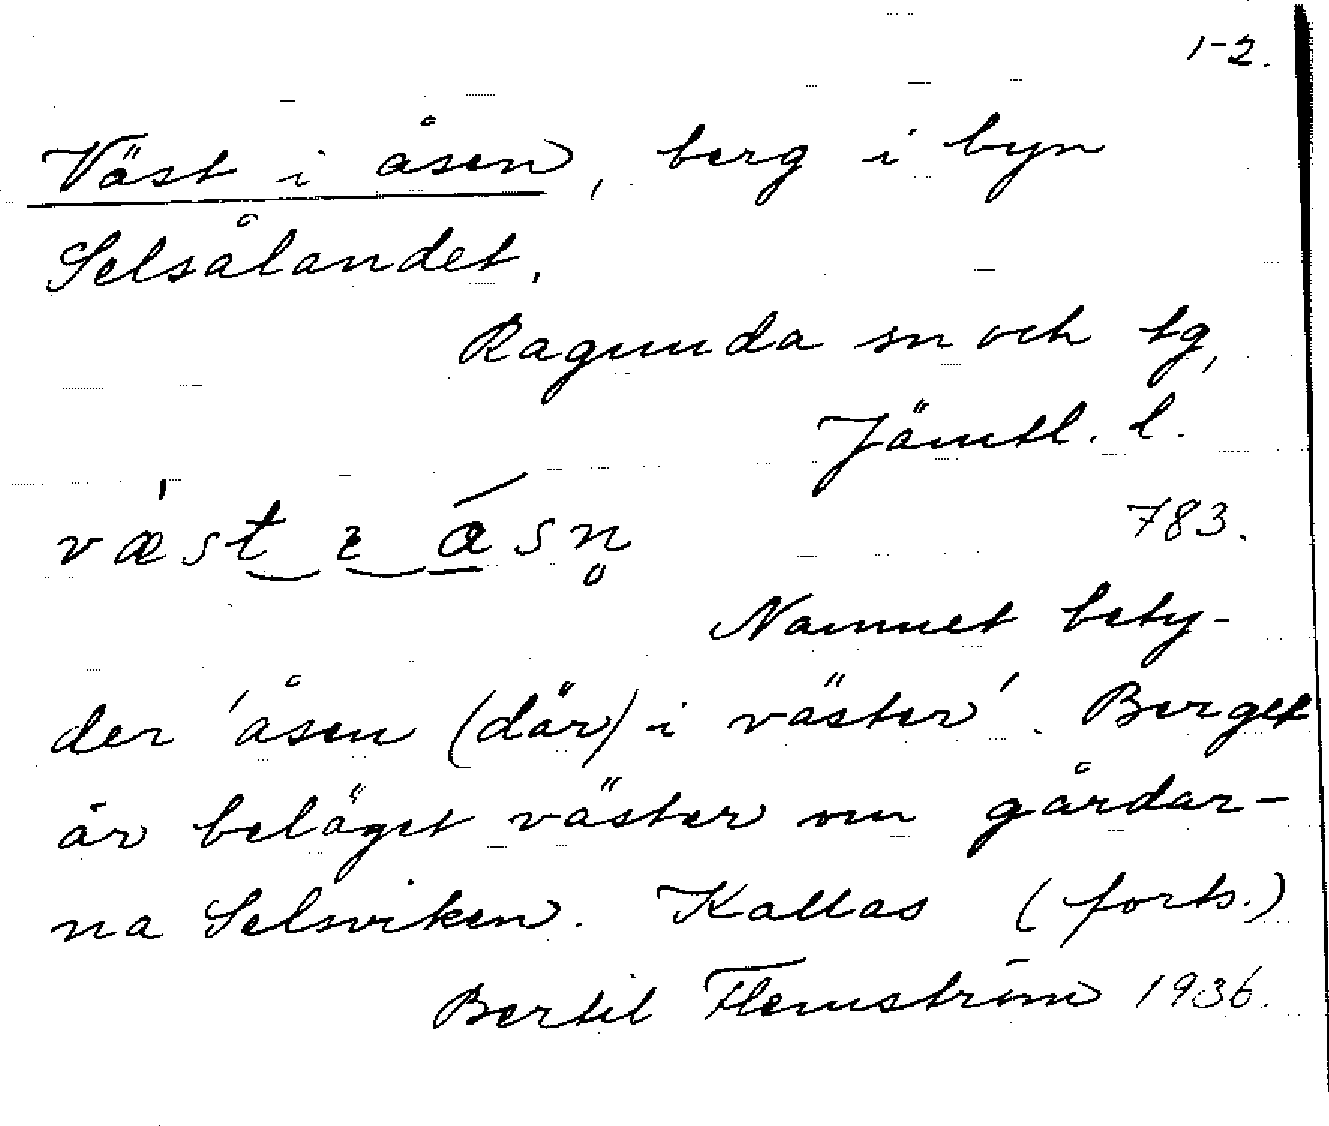 1-2.
Väst i åsen, berg i byn
Selsålandet,
Ragunda sn och tg,
Jämtl. l.
væst ı åsn̥
783.
Namnet bety-
der 'åsen (där) i väster'. Berget
är beläget väster om gårdar-
na Selsviken. Kallas (forts.)
Bertil Flemström 1936.